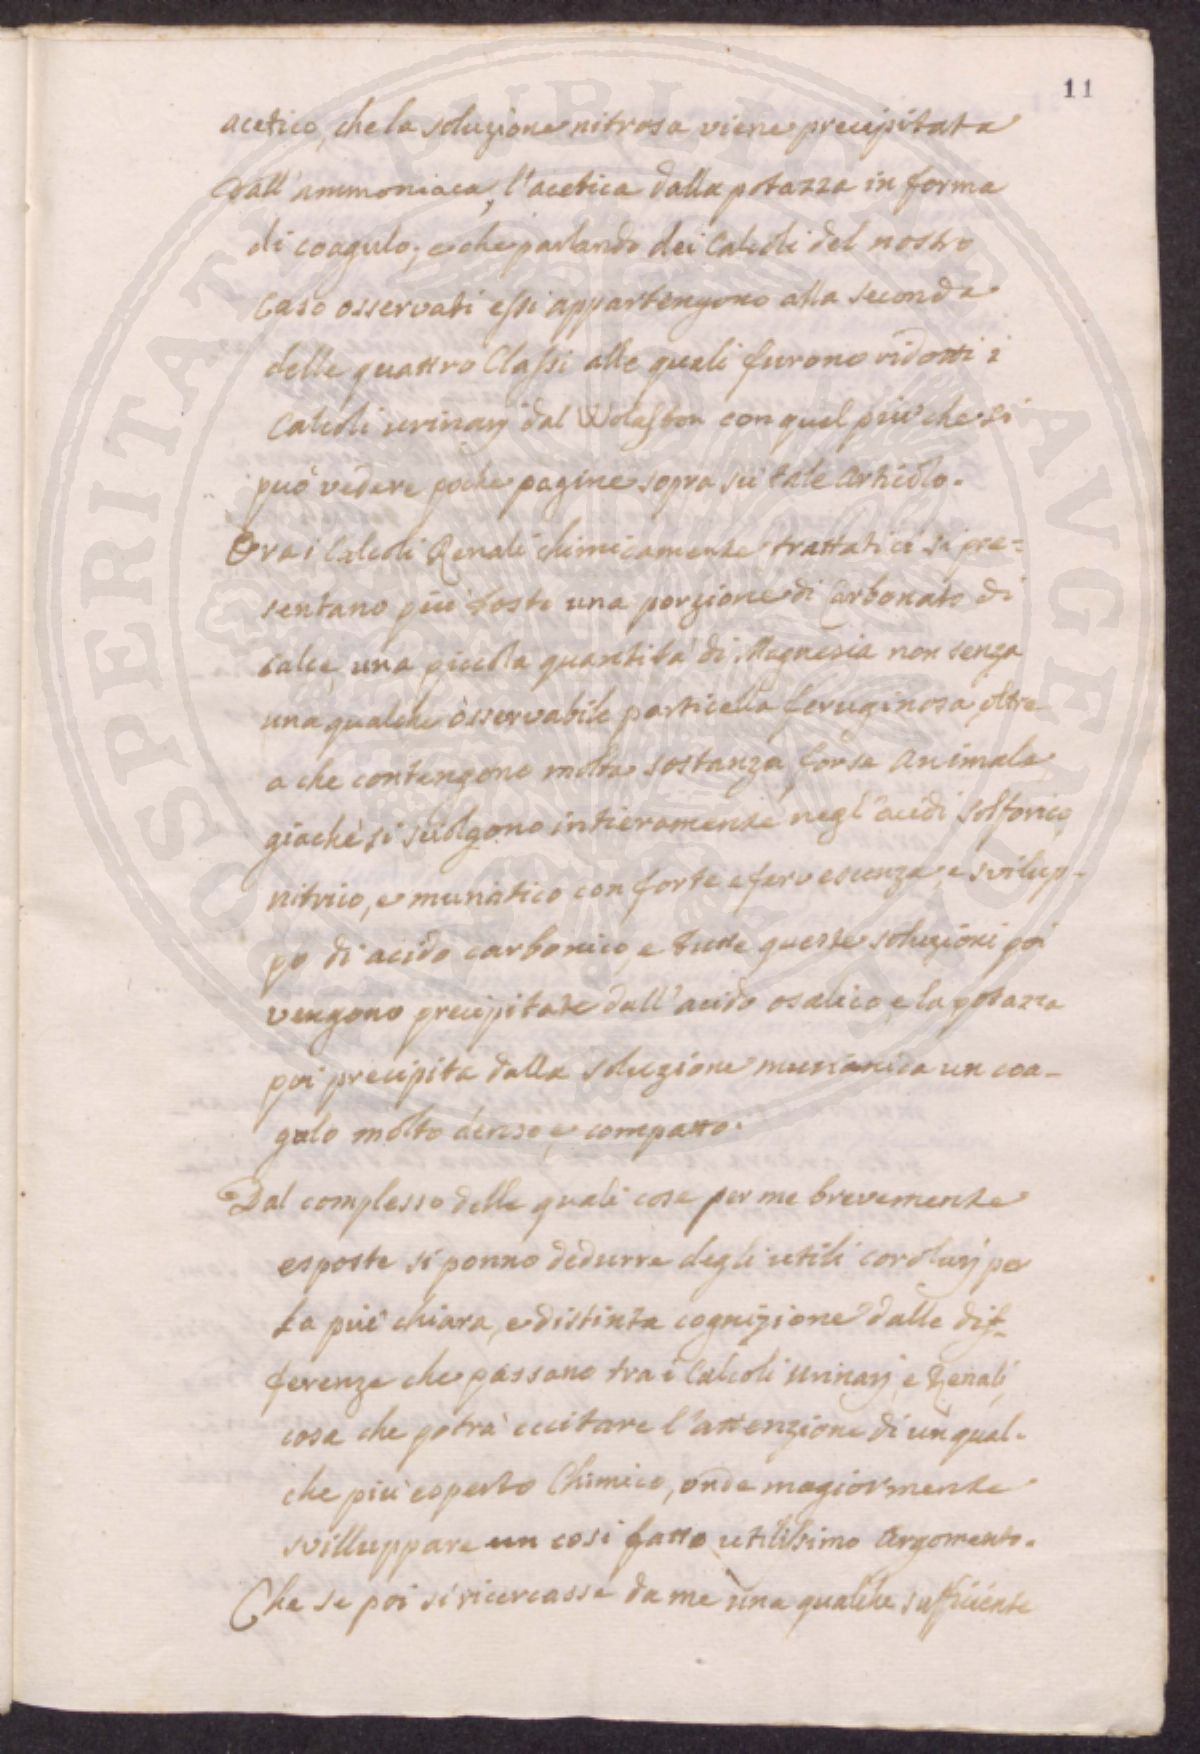 11
acetico, che la soluzione nitrosa viene precipitata
Dall'ammoniaca, l'acetica dalla potazza in forma
di coagulo; e che parlando dei Calcoli del nostro
Caso osservati essi appartengono alla seconda
delle quattro Classi alle quali furono ridotti i
Calcoli urinarj dal Wolaston con quel più che si
può vedere poche pagine sopra su tale articolo.
Ora i Calcoli Renali chimicamente trattati ci si pre=
sentano più tosto una porzione di Carbonato di
calce, una piccola quantità di Magnesia non senza
una qualche osservabile particella feruginosa, oltre
a che contengono molta sostanza, forse animale,
giachè si sciolgono intieramente negl'acidi solforico,
nitrico, e muriatico con forte efervescenza, e svilup-
po di acido carbonico, e tutte queste soluzioni poi
vengono precipitate dall'acido osalico, e la potazza
poi precipita dalla soluzione muriatica un coa-
gulo molto denso, e compatto.
Dal complesso delle quali cose per me brevemente
esposte si ponno dedurre degli utili corolarj per
la più chiara, e distinta cognizione dalle dif-
ferenze che passano tra i Calcoli Urinarj, e Renali,
cosa che potrà eccitare l'attenzione di un qual-
che più esperto Chimico, onde magiormente
svilluppare un così fatto utilissimo Argomento.
Che se poi si ricercasse da me una qualche sufficiente
PUBLICAE
PROSPERITATI
AVGENDAE